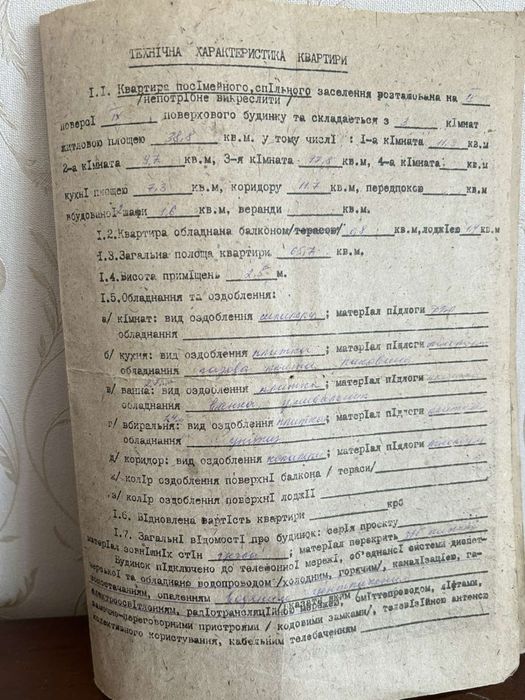 ТЕХНІЧНА ХАРАКТЕРИСТИКА КВАРТИРИ
I.I. Квартира посімейного,спільного заселення розташована на II
/непотрібне викреслити/
поверсі IV поверхового будинку та складається з 3 кімнат
житловою площею 38,8 кв.м. у тому числі : I-а кімната 11,3 кв.м
2-а кімната 9,7 кв.м, 3-я кімната 17,8 кв.м, 4-а кімната кв.м
кухні площею 7,3 кв.м, коридору 11,7 кв.м, передпокою кв.м
вбудованої шафи 1,6 кв.м, веранди кв.м.
I.2.Квартира обладнана балконом/терасою/ 0,8 кв.м,лоджією 1,4 кв.м
I.3.Загальна полоща квартири 65,7 кв.м.
I.4.Висота приміщень 2,5 м.
I.5.Обладнання та оздоблення:
а/ кімнат: вид оздоблення шпалери; матеріал підлоги
обладнання
б/ кухня: вид оздоблення плитка ; матеріал підлоги
обладнання газова плита раковина
в/ ванна: вид оздоблення плитка ; матеріал підлоги
обладнання ванна умивальник
г/ вбиральня: вид оздоблення плитка; матеріал підлоги
обладнання унітаз
д/ коридор: вид оздоблення ; матеріал підлоги
є/ колір оздоблення поверхні балкона / тераси/
з/ колір оздоблення поверхні лоджії
I.6. Відновлена вартість квартири крб
I.7. Загальні відомості про будинок: серія проєкту
матеріал зовнішніх стін ; матеріал перекрить
Будинок підключено до телефонної мережі, об'єднаної системи диспет-
черської та обладнано водопроводом /холодним, горячим/, каналізацією, га-
зопостачанням, опаленням водяним центральним
/вказати яким/
електроосвітленням, радіотрансляційною мережею, сміттепроводом, ліфтами,
замочно-переговорними пристроями / кодовими замками/, телевізійною антеною
колективного користування, кабельним телебаченням